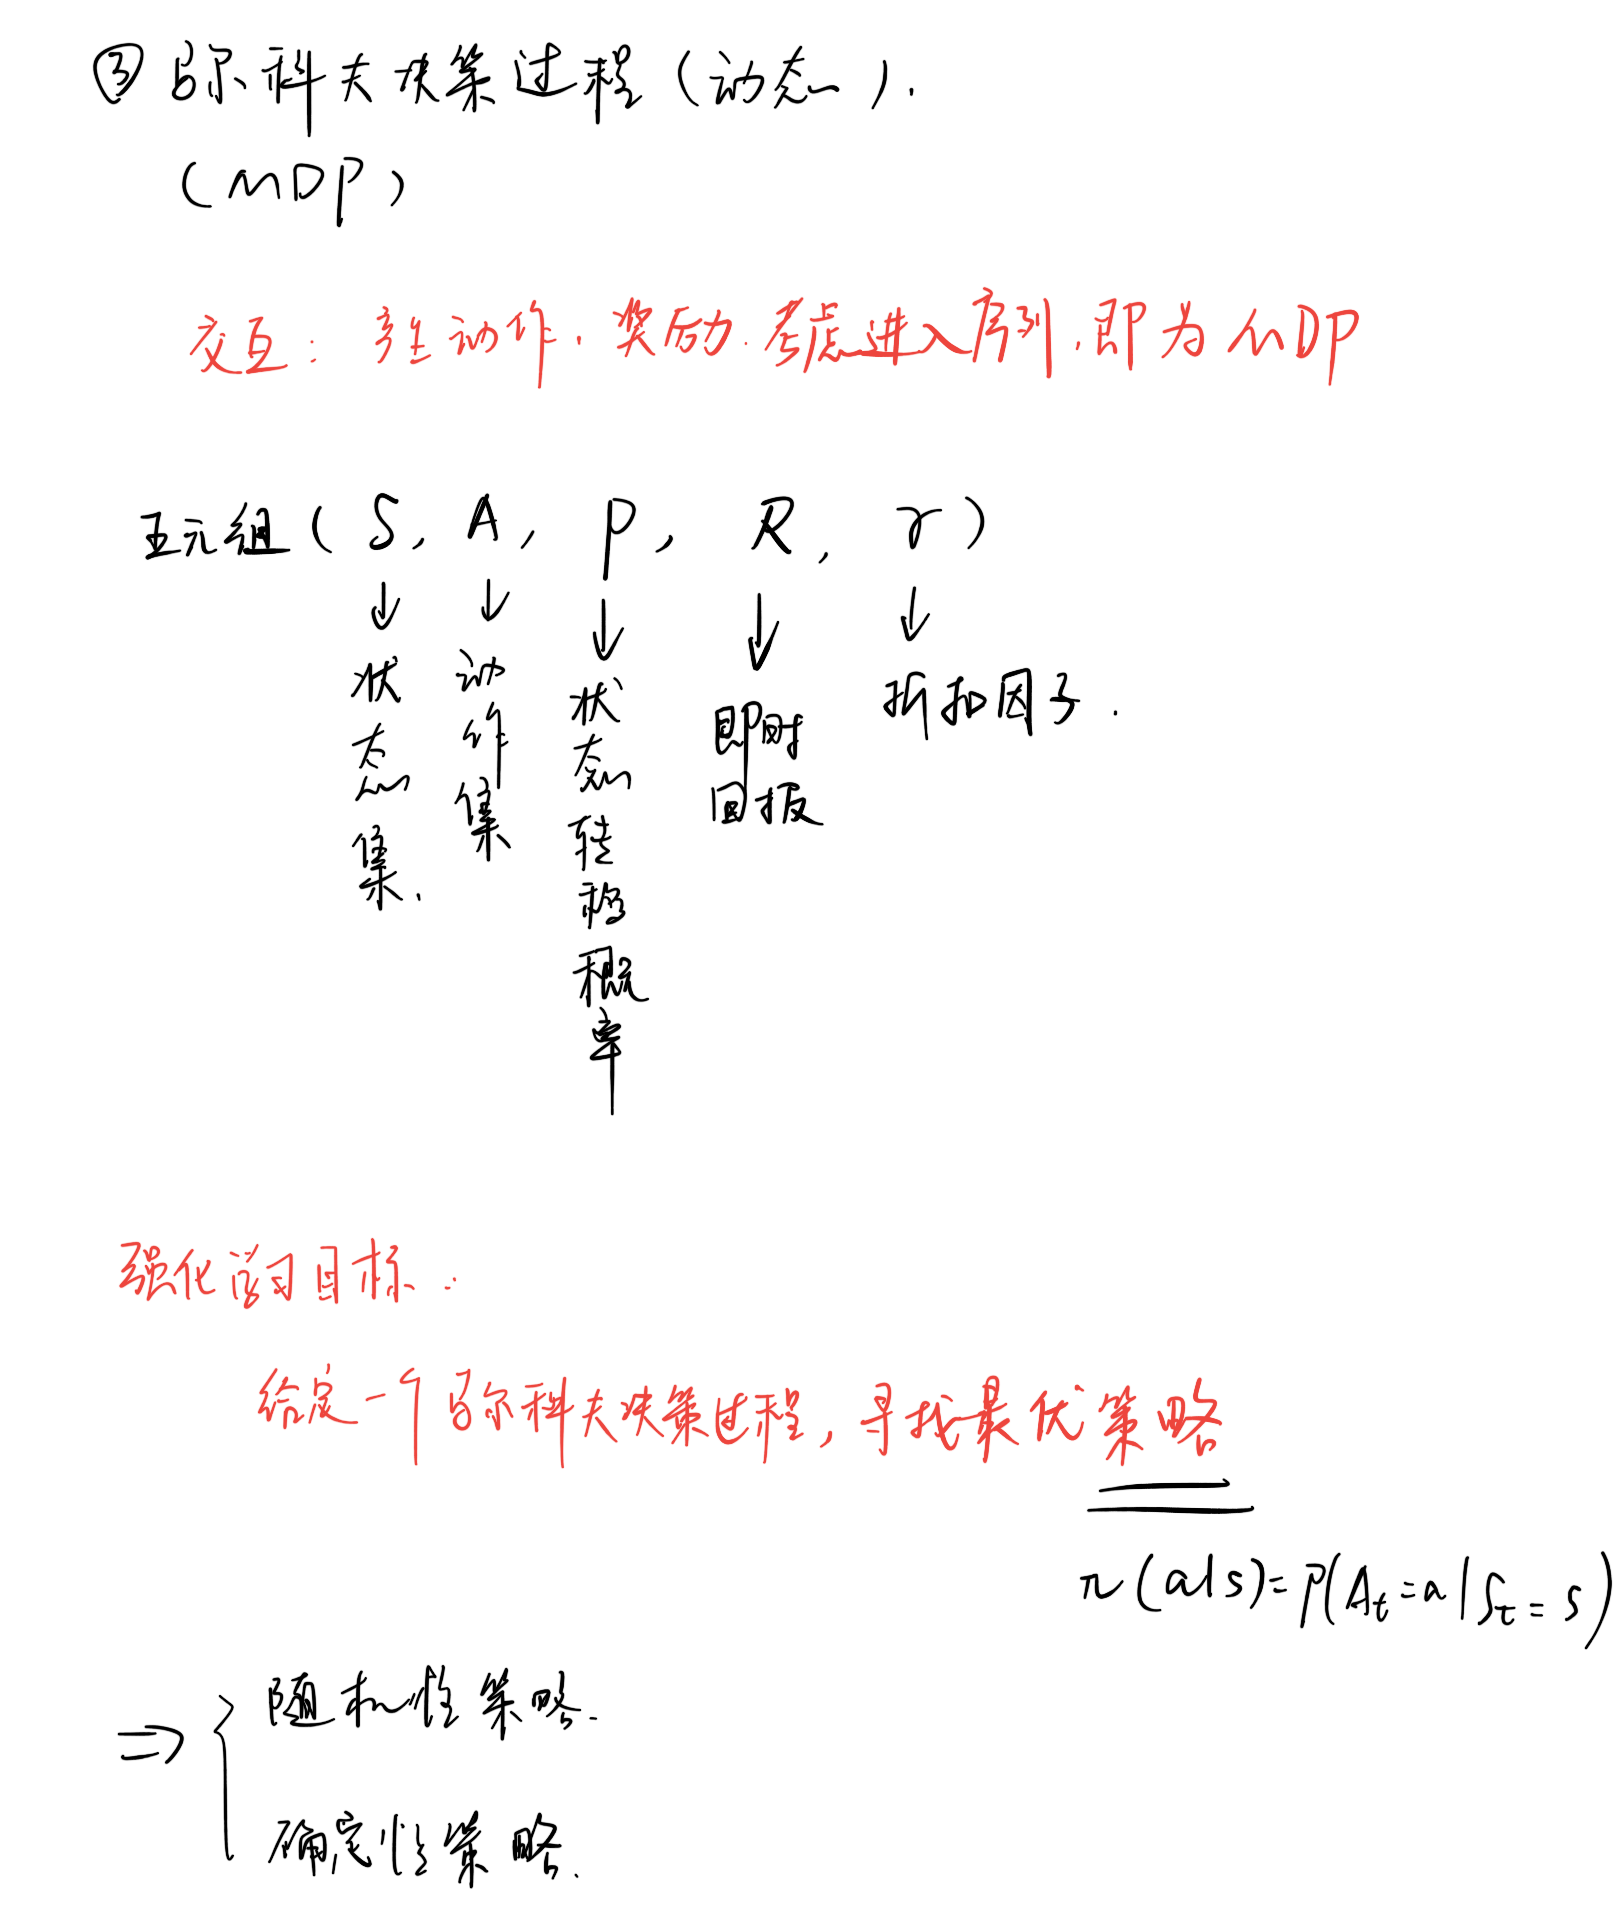 ③ 马尔科夫决策过程（动态）.
（MDP）
交互： 产生动作. 奖励. 考虑进入序列, 即为MDP
五元组( S, A, P, R, γ )
↓ ↓ ↓ ↓ ↓
状态集.
动作集
状态转移概率
即时
回报
折扣因子.
强化学习目标：
给定一个马尔科夫决策过程, 寻找最优策略
π(a|s)=P(At=a|St=s)
⇒ { 随机性策略.
确定性策略.